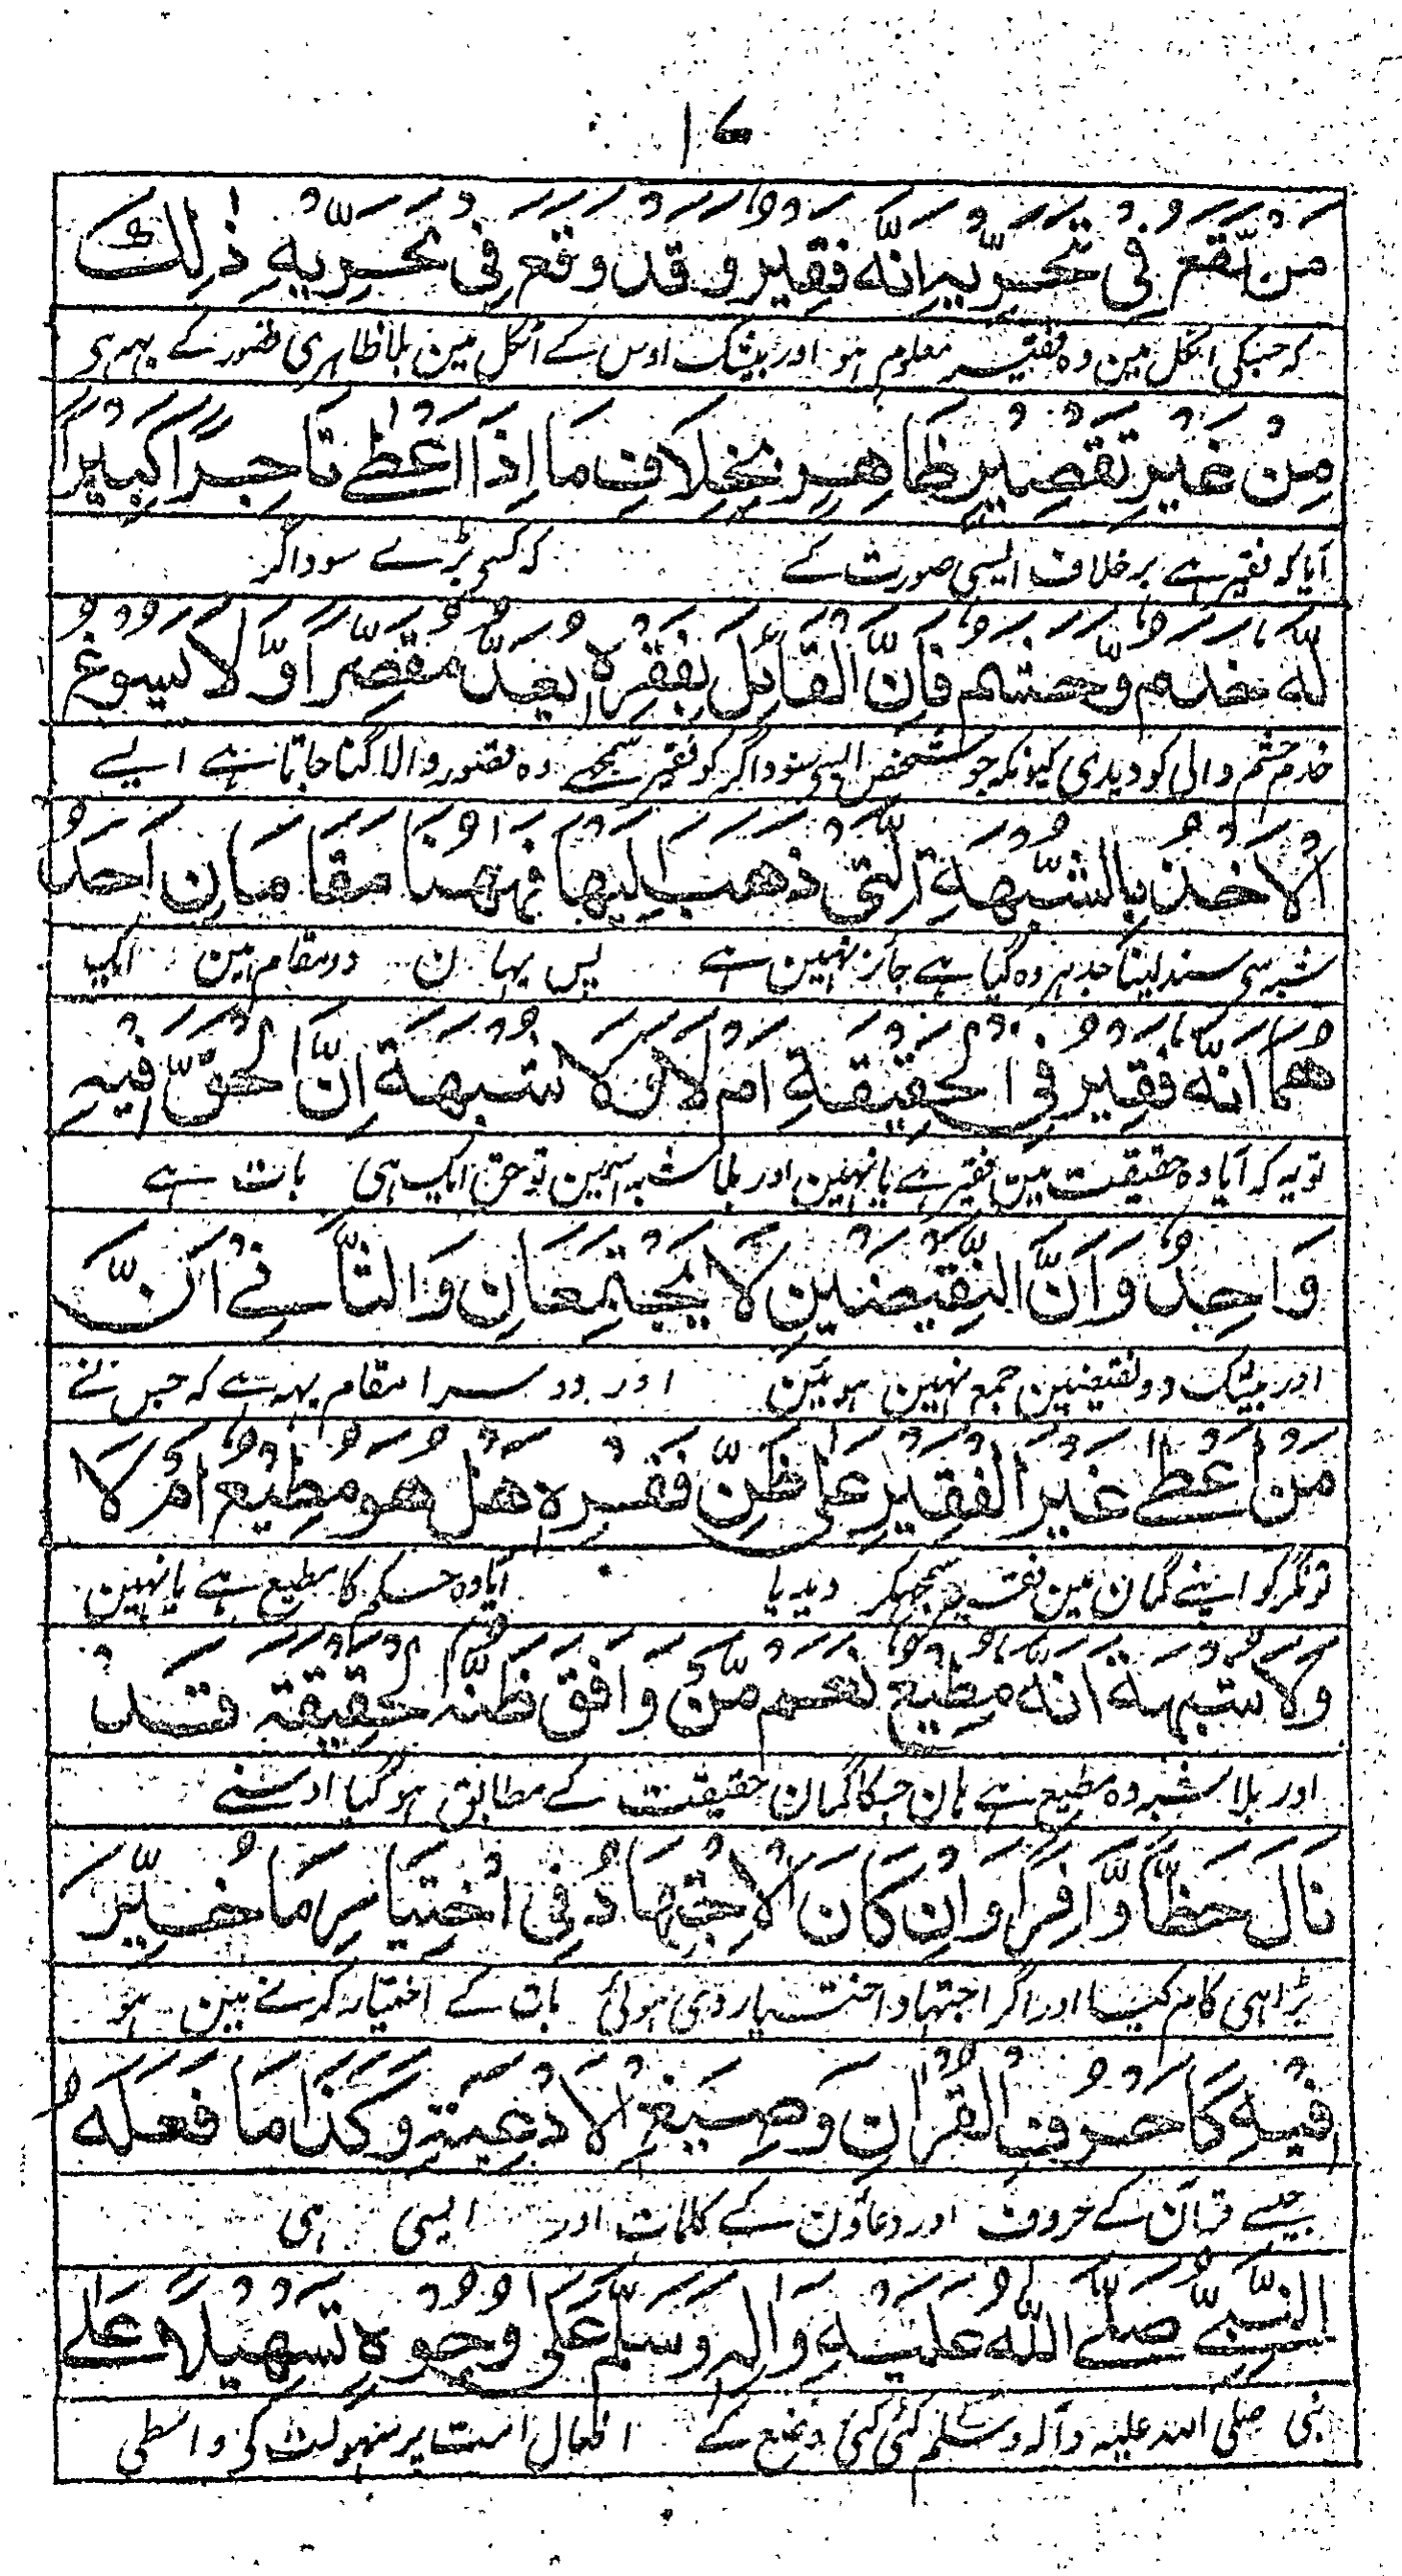 ۱۶
مَنْ یَّقَعُ فِیْ تَحَرِّیْہِ اَنَّہٗ فَقِیْرٌ وَقَدْ وَقَعَ فِیْ تَحَرِّیْہِ ذٰلِکَ
کہ جسکی اٹکل مین وہ فقیر معلوم ہو اور بیشک اوس کے اٹکل مین بلا ظاہری قصور کے یہہ ہی
مِنْ غَیْرِ تَقْصِیْرٍ ظَاهِرٍ بِخِلَافِ مَا اِذَا اَعْطٰے تَاجِرًا کَبِیْرًا
آیا کہ فقیر ہے برخلاف ایسی صورت کے کہ کسی بڑے سوداگر
لَہٗ خَدَمٌ وَّحَشَمٌ فَاِنَّ الْقَائِلَ بِفَقْرِہٖ یُعَدُّ مُقَصِّرًا وَّلَا یَسُوْغُ
خدم حشم والی کو دیدی کیونکہ جو شخص ایسی سوداگر کو فقیر سمجھے وہ قصور والا گنا جاتا ہے ایسے
الْاَخْذُ بِالشُّبْهَةِ الَّتِیْ ذَهَبَ اِلَیْهَا فَهٰهُنَا مَقَامَانِ اَحَدُ
شبہ سی سند لینا جدہر وہ گیا ہے جائز نہین ہے پس یہا ن دو مقام ہین ایک
هُمَا اَنَّہٗ فَقِیْرٌ فِی الْحَقِیْقَةِ اَمْ لَا وَلَا شُبْهَةَ اَنَّ الْحَقَّ فِیْہِ
تو یہ کہ آیا وہ حقیقت مین فقیر ہے یا نہین اور بلا شبہ اسمین تو حق ایک ہی بات ہے
وَاحِدٌ وَاَنَّ النَّقِیْضَیْنِ لَا یَجْتَمِعَانِ وَالثَّانِےْ اَنَّ
اور بیشک دو نقیضین جمع نہین ہوتین اور دوسرا مقام یہہ ہے کہ جس نے
مَنْ اَعْطٰے غَیْرَ الْفَقِیْرِ عَلٰی ظَنِّ فَقْرِہٖ هَلْ هُوَ مُطِیْعٌ اَمْ لَا
تونگر کو اپنے گمان مین فقیر سمجھکر دیدیا آیا وہ حکم کا مطیع ہے یا نہین
وَلَا شُبْهَةَ اَنَّہٗ مُطِیْعٌ نَعَمْ مَنْ وَافَقَ ظَنُّہُ الْحَقِیْقَةَ قَدْ
اور بلا شبہ وہ مطیع ہے ہان جسکا گمان حقیقت کے مطابق ہو گیا اوسنے
نَالَ حَظًّا وَّافِرًا وَاِنْ کَانَ الْاِجْتِهَادُ فِی اخْتِیَارِ مَا خُیِّرَ
بڑا ہی کام کیا اور اگر اجتہاد اختیار دی ہوئی بات کے اختیار کرنے مین ہو
فِیْہِ کَاَحْرُفِ الْقُرْاٰنِ وَصِیَغِ الْاَدْعِیَةِ وَکَذَا مَا فَعَلَہُ
جیسے قرآن کے حروف اور دعاؤن کے کلمات اور ایسی ہی
النَّبِیُّ صَلَّے اللّٰہُ عَلَیْہِ وَاٰلِہٖ وَسَلَّمَ عَلٰی وُجُوْہٍ تَسْهِیْلًا عَلَے
نبی صلی اللہ علیہ وآلہ وسلم کئی کئی وضع کے افعال امت پر سہولت کی واسطی